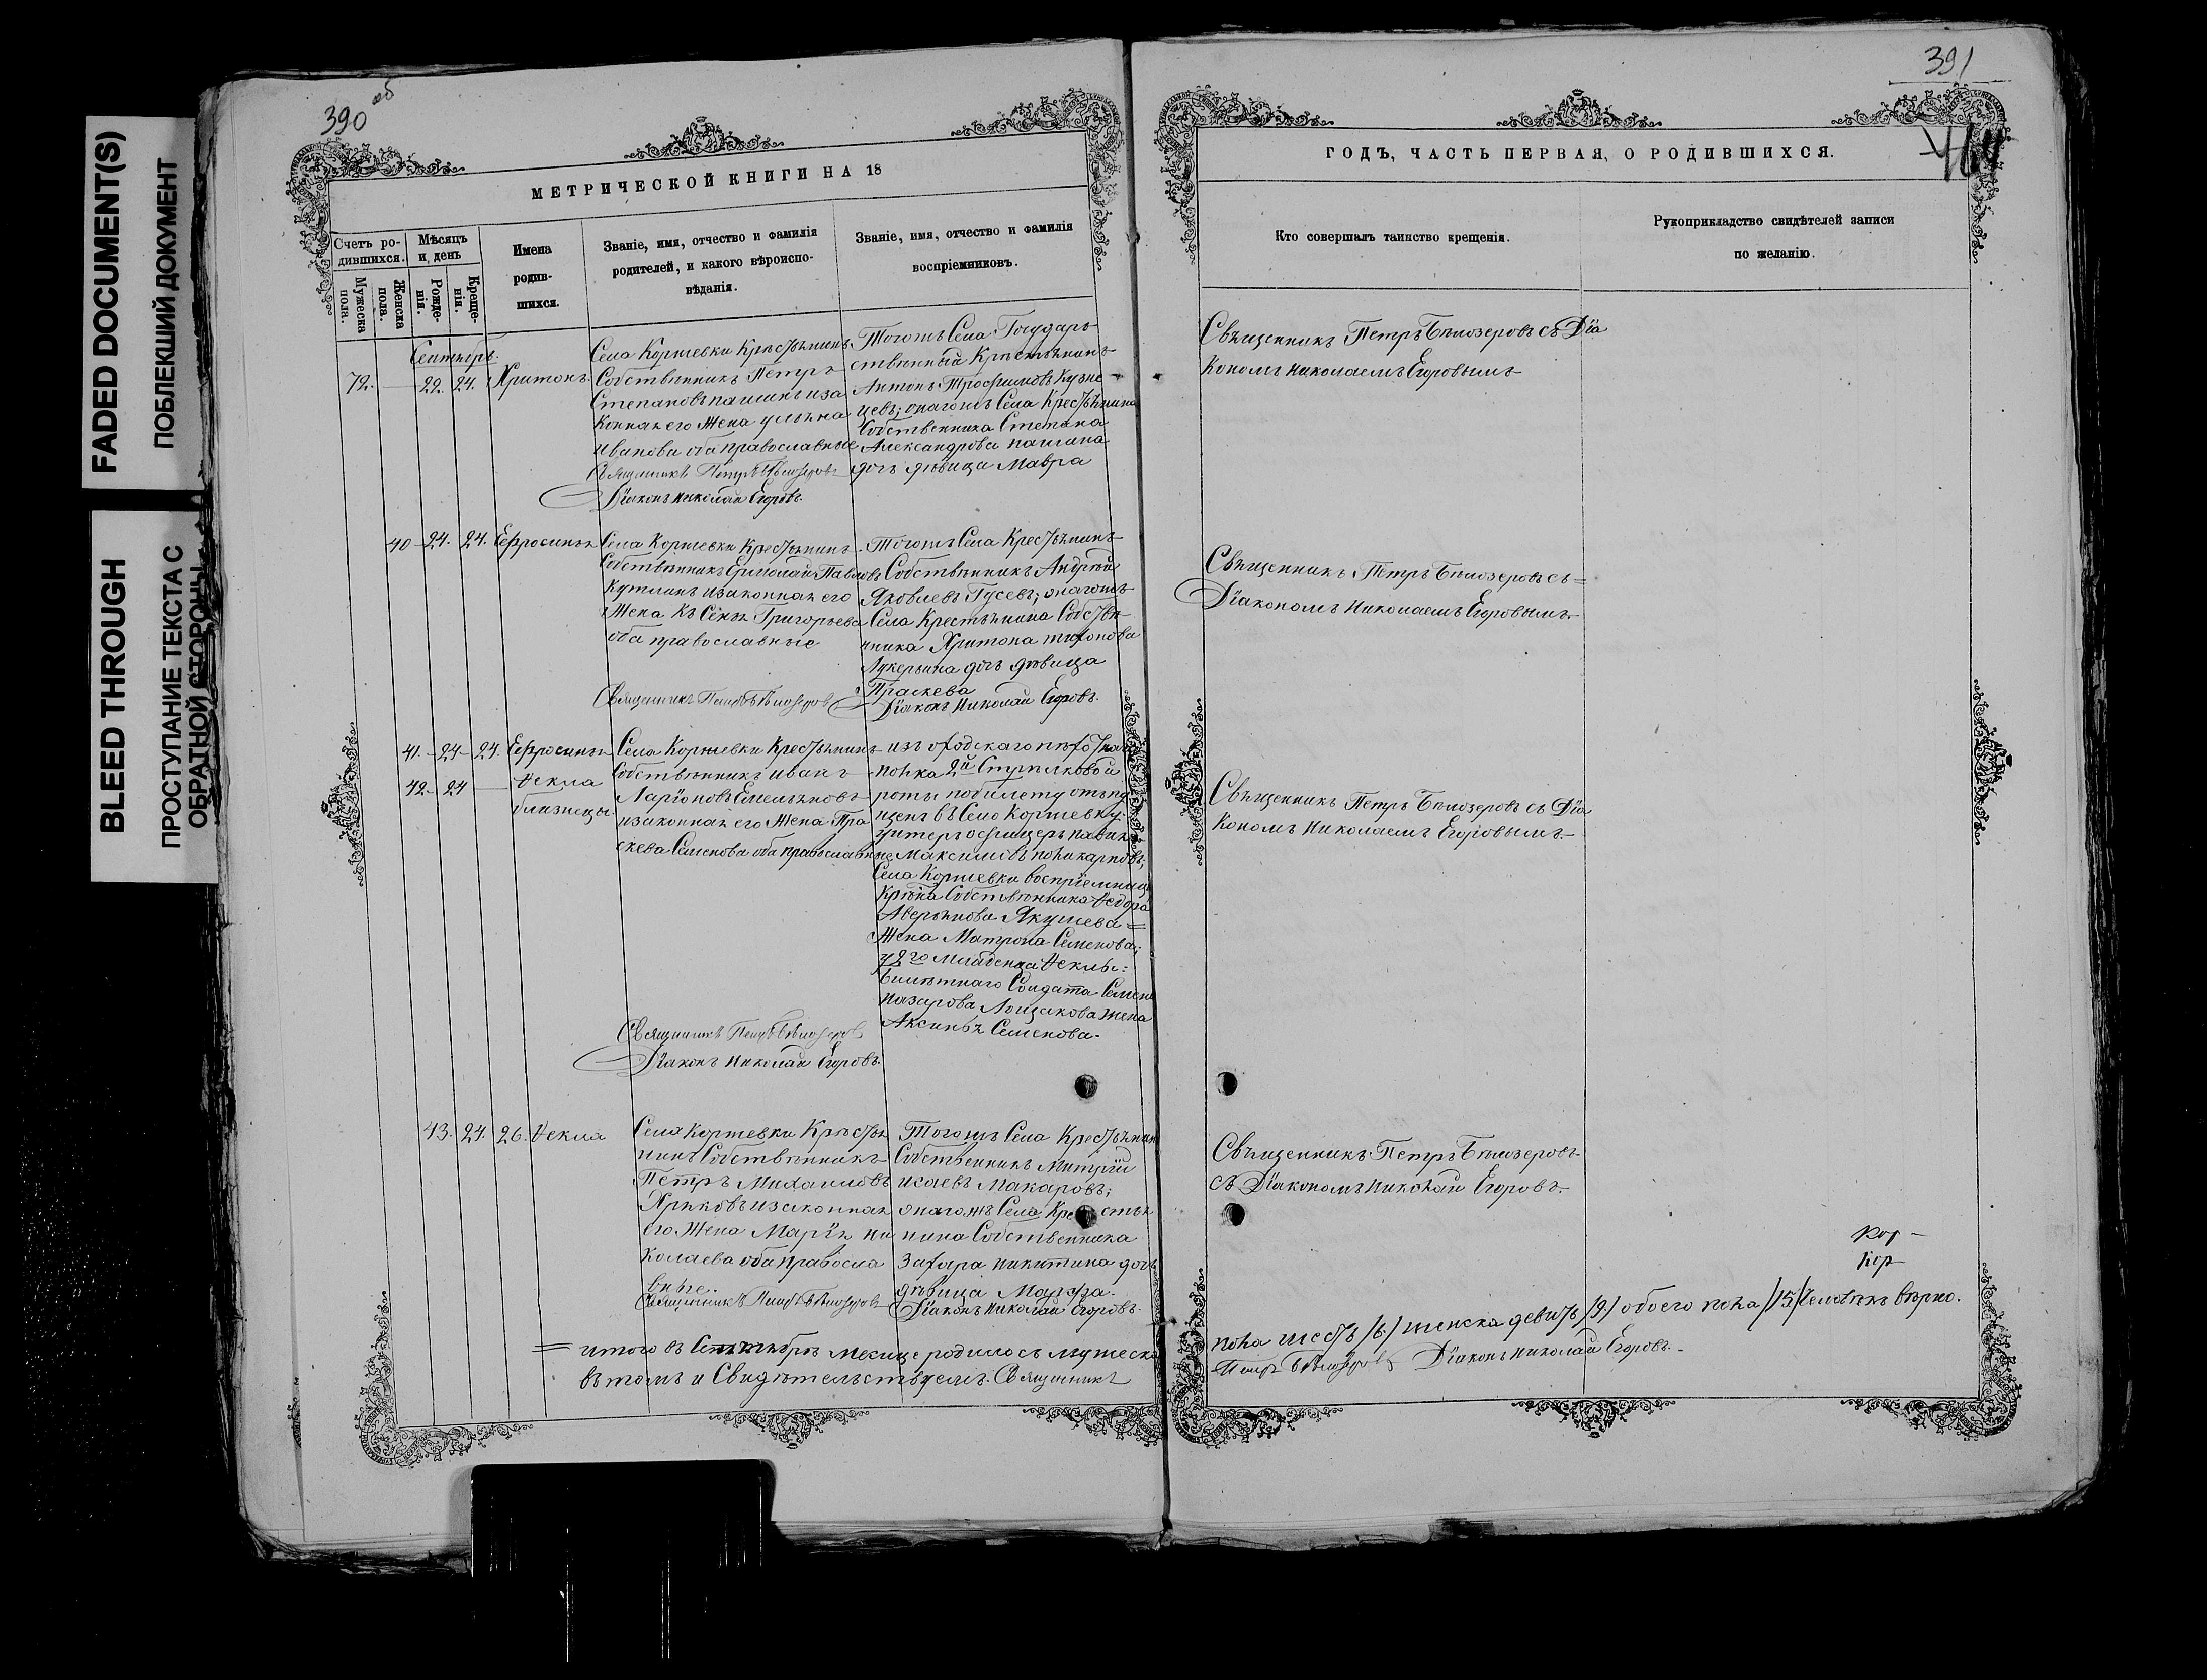 FADED DOCUMENT(S)
ПОБЛЕКШИЙ ДОКУМЕНТ
BLEED THROUGH
ПРОСТУПАНИЕ ТЕКСТА С
ОБРАТНОЙ СТОРОНЫ
390 об
МЕТРИЧЕСКОЙ КНИГИ НА 18
Счетъ ро-
дившихся.
Мужеска
пола.
Женска
пола.
Мѣсяцъ
и день
Рожде-
нія.
Креще-
нія.
Имена
родив-
шихся.
Званіе, имя, отчество и фамилія
родителей, и какого вѣроиспо-
вѣданія.
Званіе, имя, отчество и фамилія
воспріемниковъ.
Сентябрь.
72. 22. 24. Харитонъ.
Села Коржевки Крестьянинъ
Собственникъ Петръ
Степановъ иза
конная его Жена Ульяна
Иванова оба православные
Священникъ Петръ Бѣлозеровъ
Діаконъ Николай Егоровъ.
Тогожъ Села Государ
ственный Крестьянинъ
Антонъ Трофимовъ Кузне
цовъ; онагожъ Села Крестьянина
Собственника Степана
Александрова
дочь дѣвица Мавра
40 24. 24. Ефросинья
Села Коржевки Крестьянинъ
Собственникъ Ермолай Павловъ
изаконная его
Жена Ксенья Григорьева
оба православные
Священникъ Петръ Бѣлозеровъ
Тогожъ Села Крестьянинъ
Собственникъ Андрей
Яковлевъ Гусевъ; онагожъ
Села Крестьянина Собстве
нника Харитона Тихонова
дочь дѣвица
Праскева
Діаконъ Николай Егоровъ.
41. 24 24. Ефросинья
42. 24 Ѳекла
близнецы.
Села Коржевки Крестьянинъ
Собственникъ Иванъ
Ларіоновъ Емельяновъ
изаконная его Жена Пра
скева Семенова оба православные
полка 2й Стрелковой
роты по билету отпу
щенъ въ Село Коржевку
унтеръ офицеръ
Максимовъ Поликарповъ;
Села Коржевки воспріемница
Кр-на Собственника Ѳедора
Аверьянова Якушева
Жена Матрона Семенова;
у 2го младенца Ѳеклы:
билетнаго Солдата Семена
Назарова Лощакова Жена
Аксинья Семенова.
Священникъ Петръ Бѣлозеровъ
Діаконъ Николай Егоровъ.
43. 24. 26. Ѳекла
Села Коржевки Крестья
нинъ Собственникъ
Петръ Михаиловъ
Хряковъ изаконная
его Жена Марія Ни
колаева оба правосла
вные.
Священникъ Петръ Бѣлозеровъ
Тогожъ Села Крестьянинъ
Собственникъ Митрій
Исаевъ Макаровъ;
онагожъ Села Крестья
нина Собственника
Захара Никитина дочь
дѣвица Марфа.
Діаконъ Николай Егоровъ.
итого въ Сентябрѣ месяце родилось мужеска
въ томъ и Свидѣтельствуемъ. Священникъ
391
464
ГОДЪ, ЧАСТЬ ПЕРВАЯ, О РОДИВШИХСЯ.
Кто совершалъ таинство крещенія.
Рукоприкладство свидѣтелей записи
по желанію.
Священникъ Петръ Бѣлозеровъ съ Діа
кономъ Николаемъ Егоровымъ
Священникъ Петръ Бѣлозеровъ съ
Діакономъ Николаемъ Егоровымъ.
Священникъ Петръ Бѣлозеровъ съ Діа
кономъ Николаемъ Егоровымъ.
Священникъ Петръ Бѣлозеровъ
съ Діакономъ Николай Егоровъ.
пола шесть /6/ женска девять /9/ обоего пола /15/ человѣкъ вѣрно.
Петръ Бѣлозеровъ Діаконъ Николай Егоровъ.